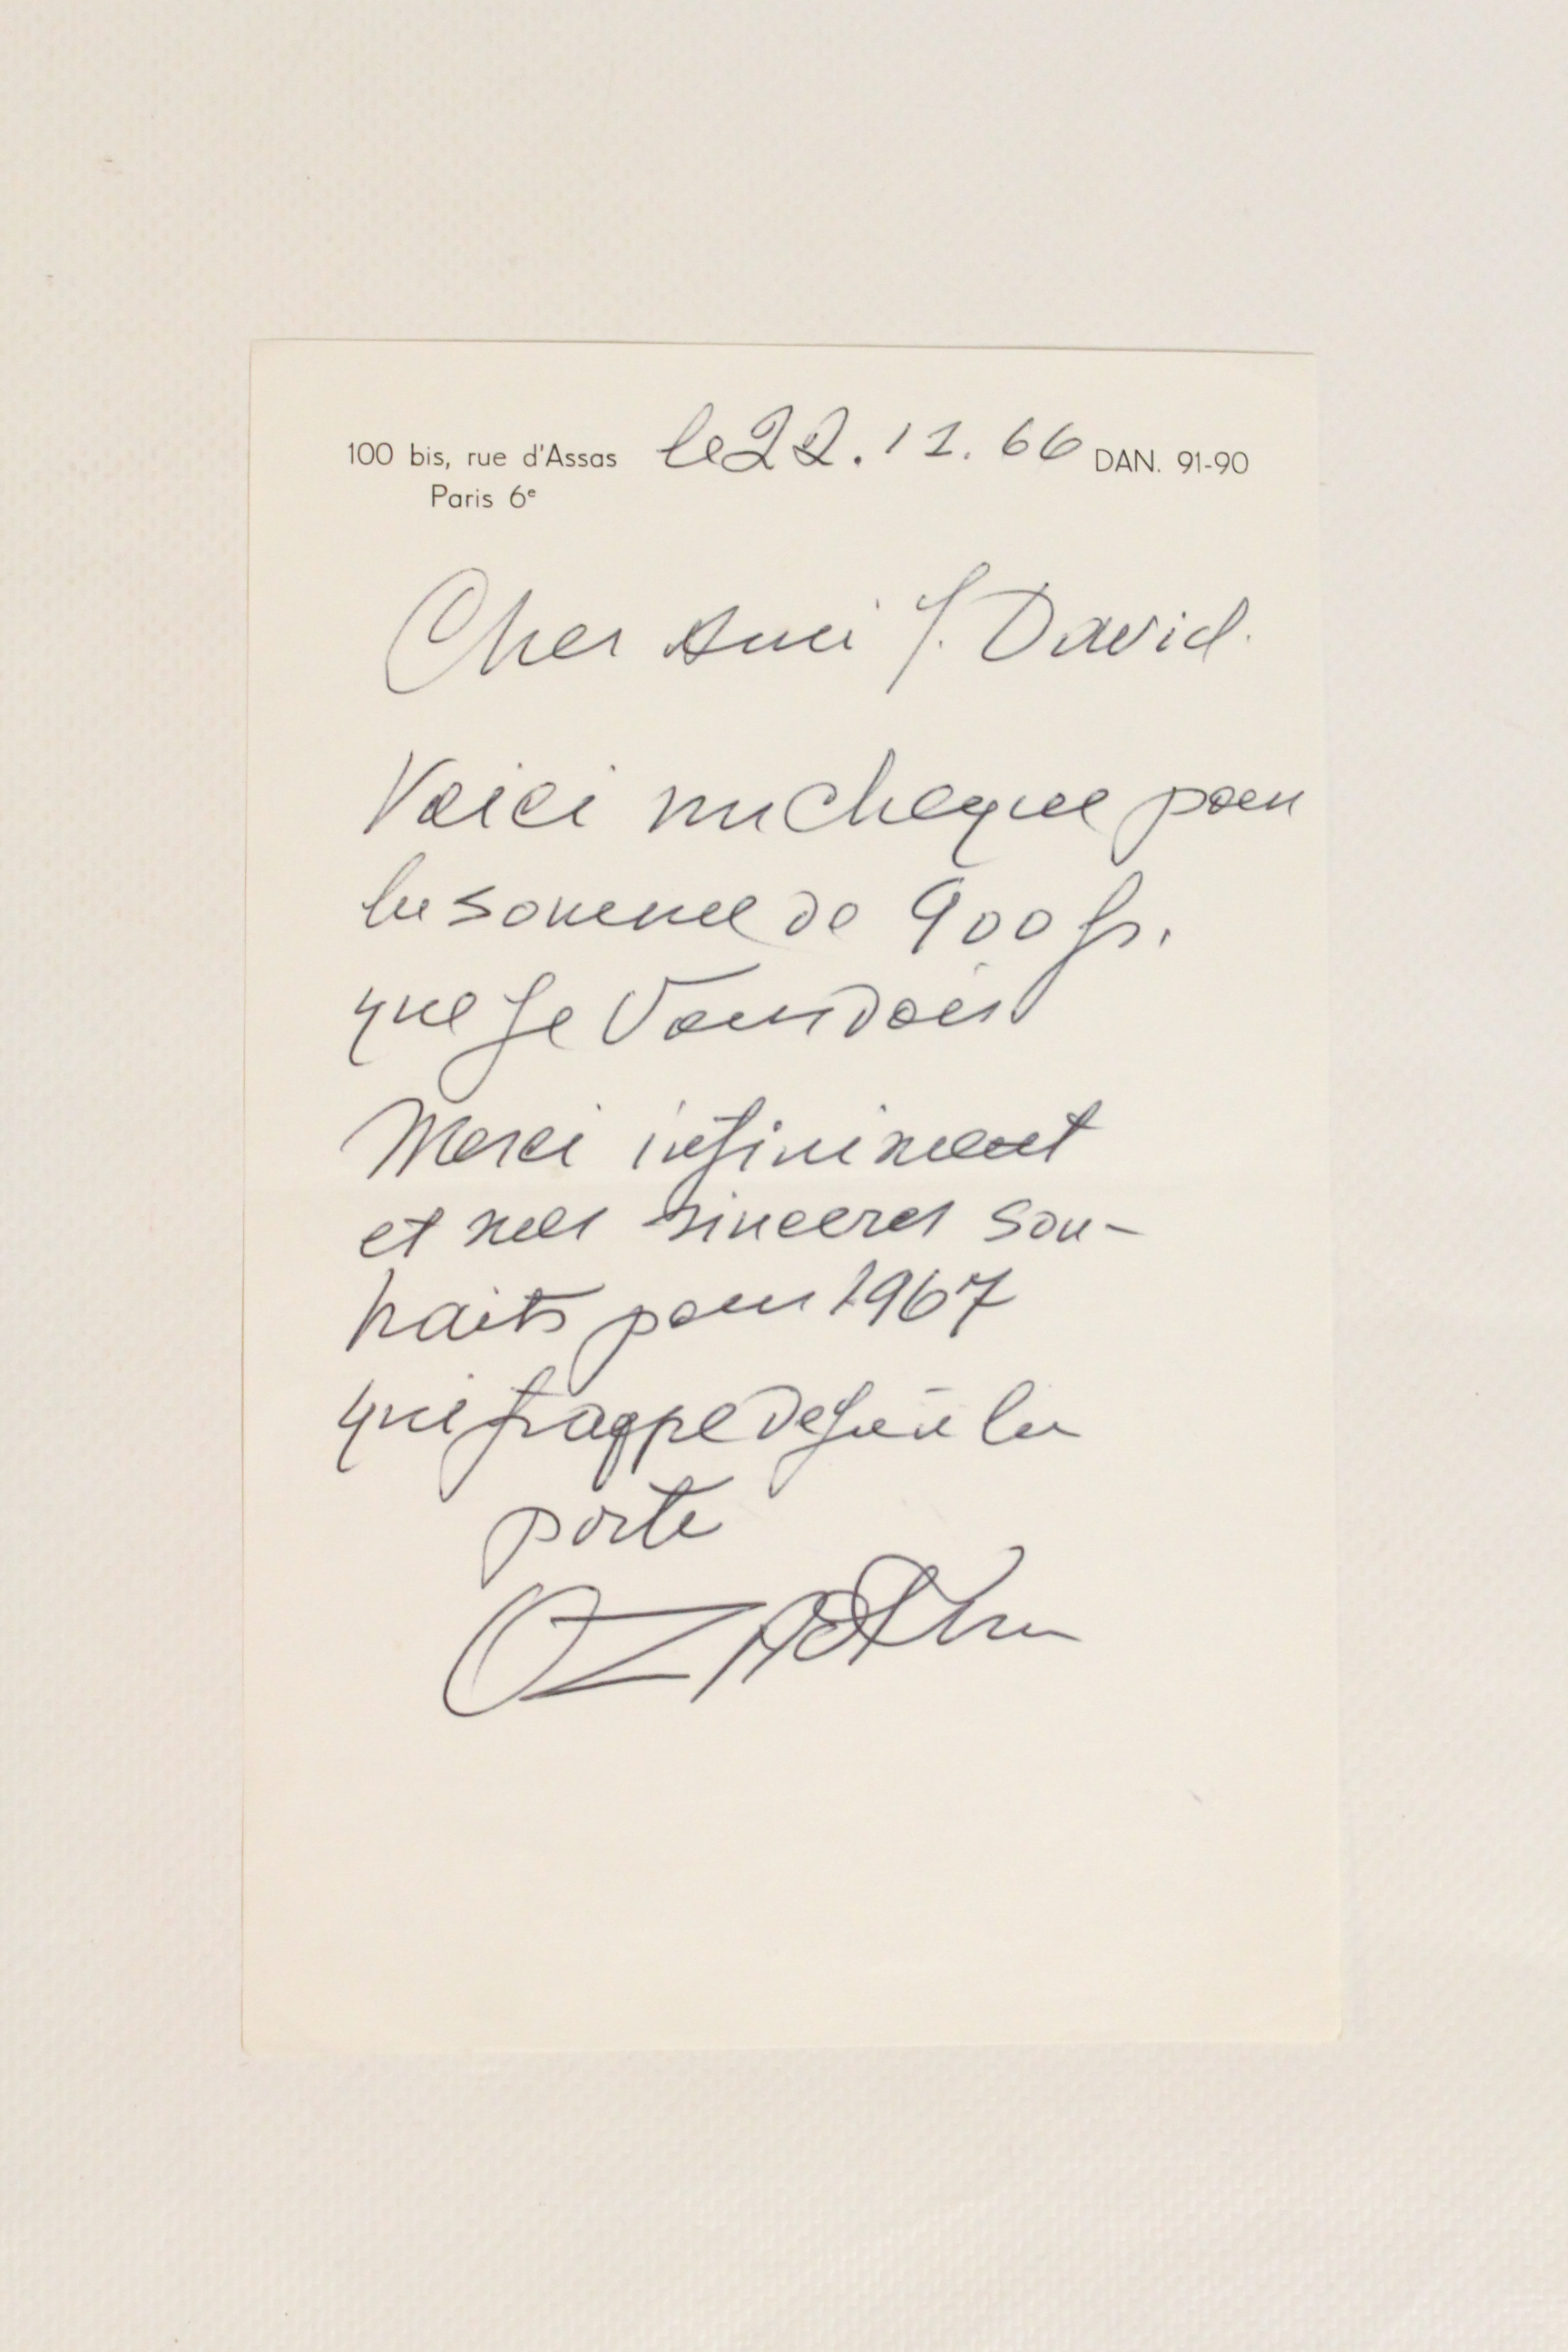 100 bis, rue d'Assas le 22.12.66 DAN. 91-90
Paris 6e
Cher Ami J. David.
Voici un cheque pour
la somme de 900 fr.
que Je Vous dois
Merci infiniment
et mes sinceres sou-
haits pour 1967
qui frappe deja à la
porte
OZadkine